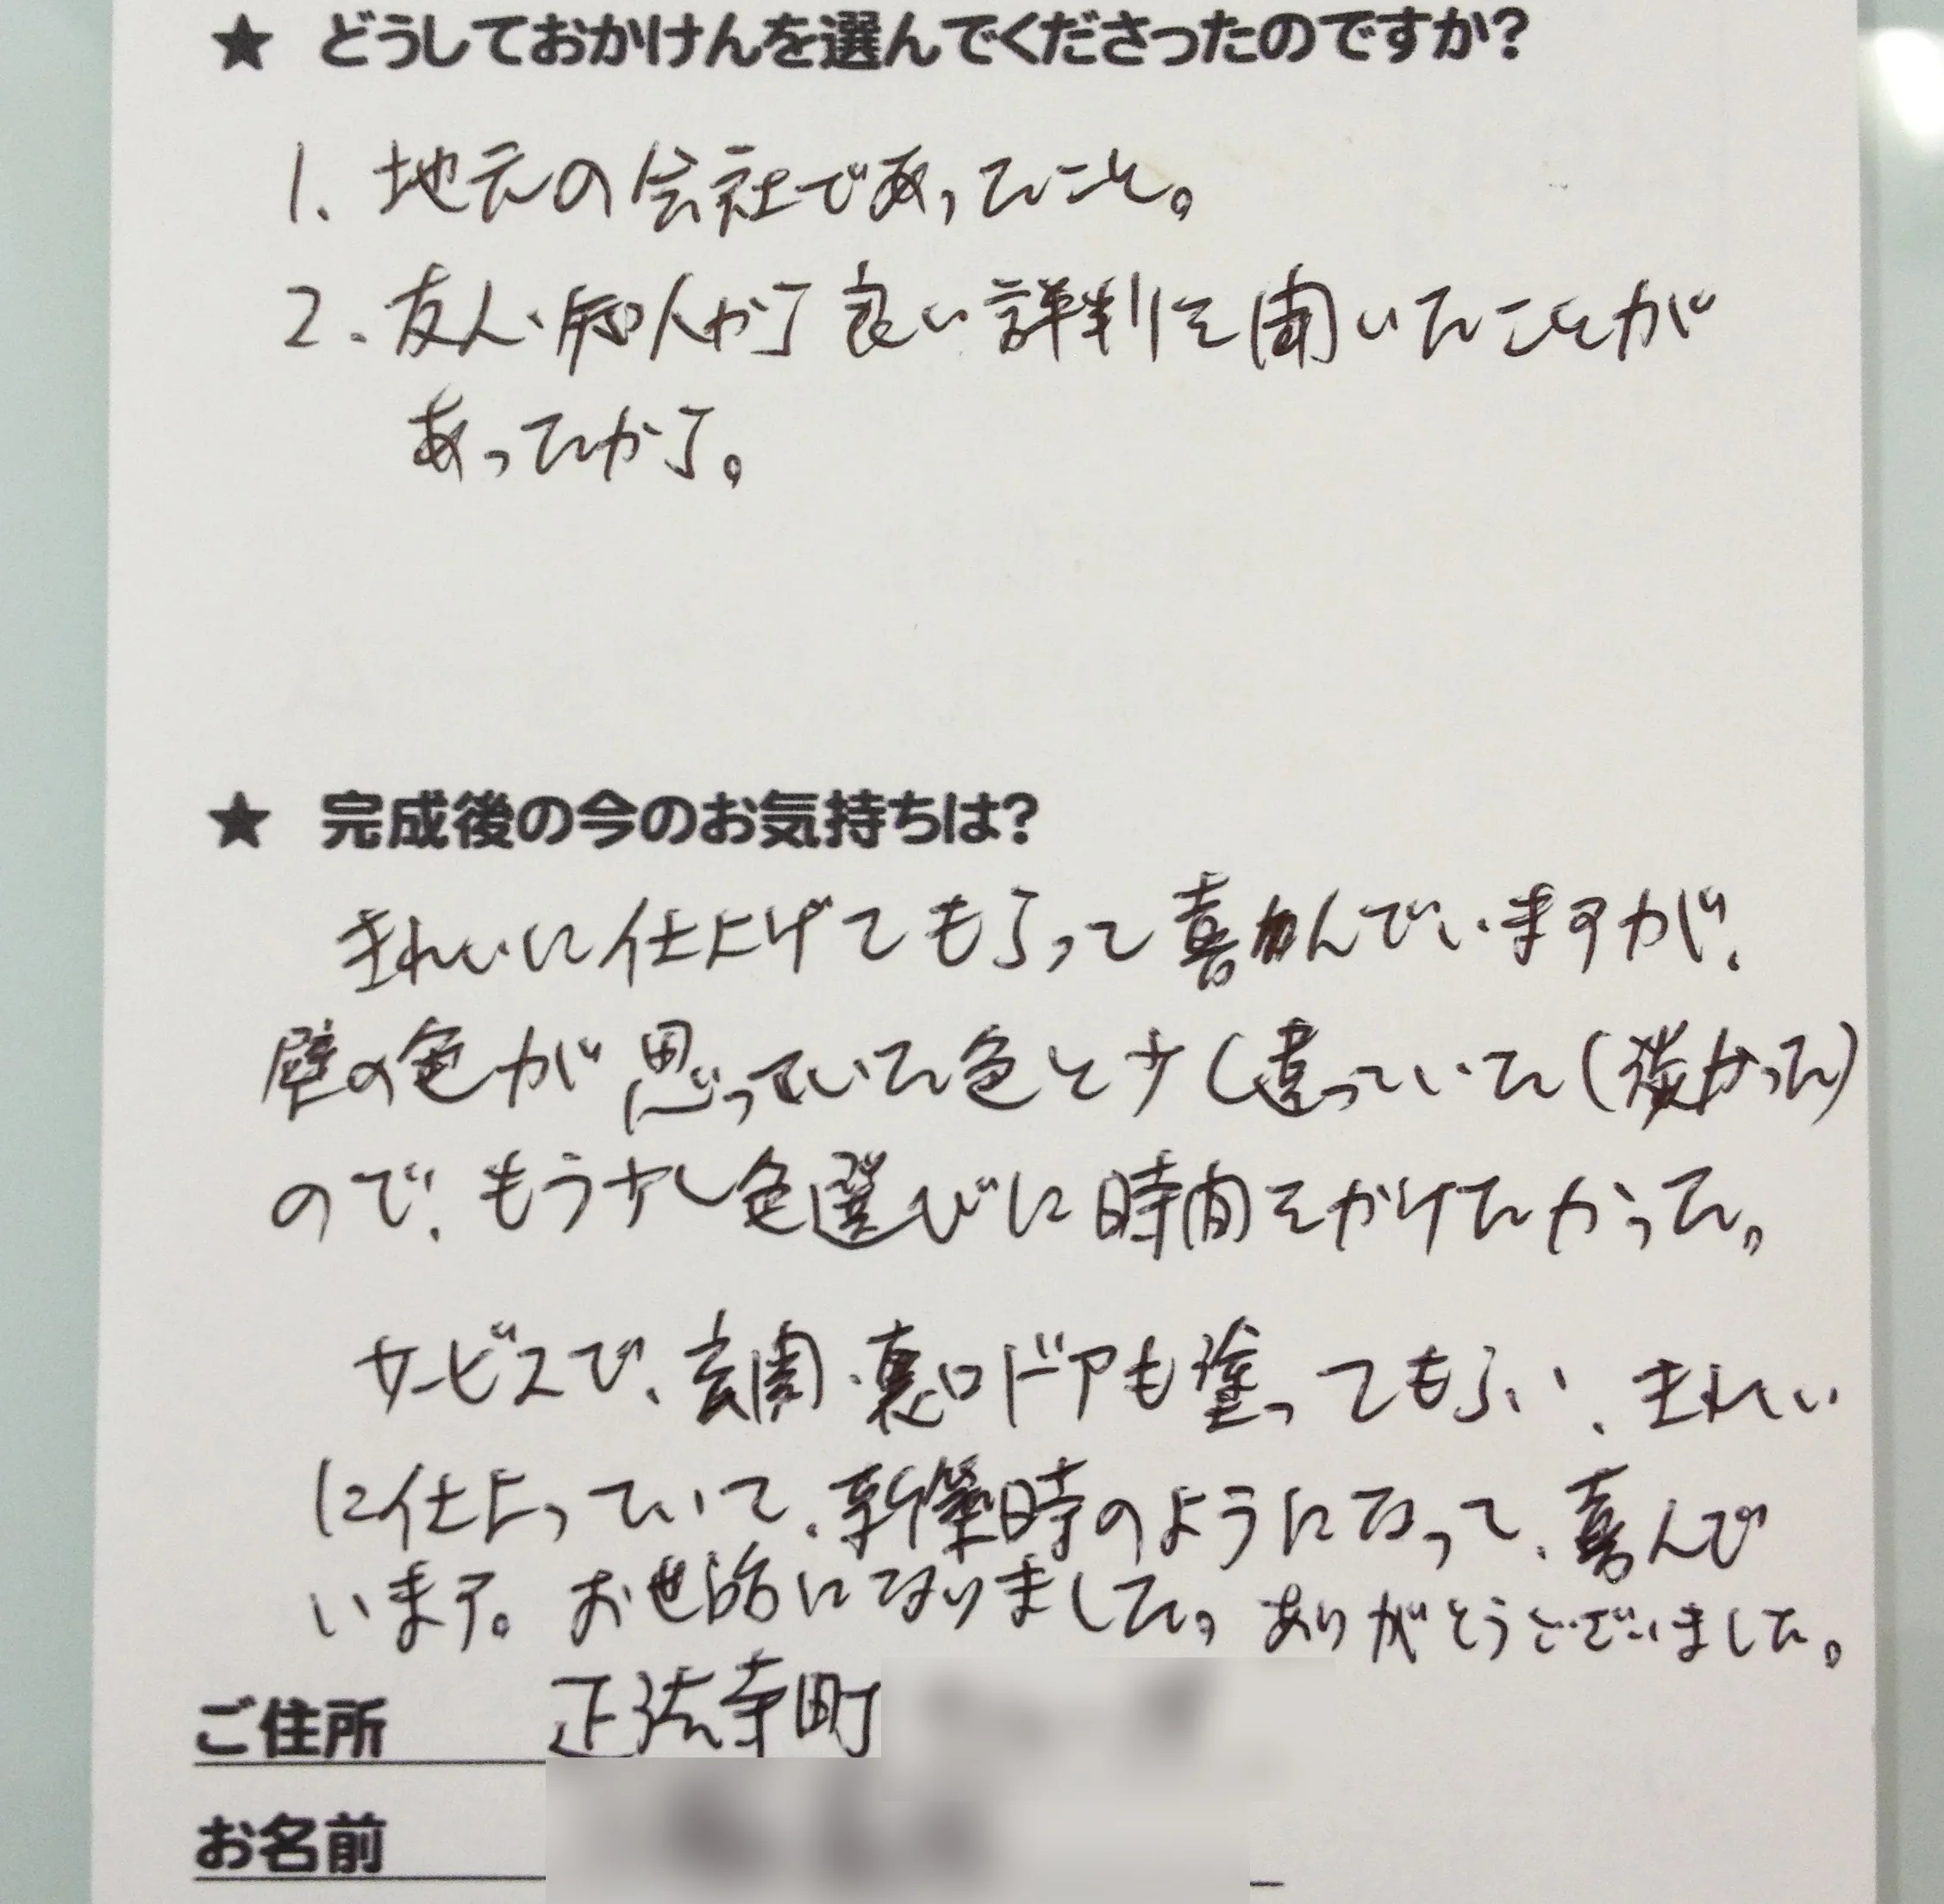 ★ どうしておかけんを選んでくださったのですか?
1. 地元の会社であったこと。
2. 友人・知人から良い評判を聞いたことが
あったから。
★ 完成後の今のお気持ちは?
きれいに仕上げてもらって喜んでいますが、
壁の色が思っていた色と少し違っていた(淡かった)
ので、もう少し色選びに時間をかけたかった。
サービスで、玄関・裏口ドアも塗ってもらい、きれい
に仕上っていて、新築時のようになって、喜んで
います。お世話になりました。ありがとうございました。
ご住所 正法寺町
お名前